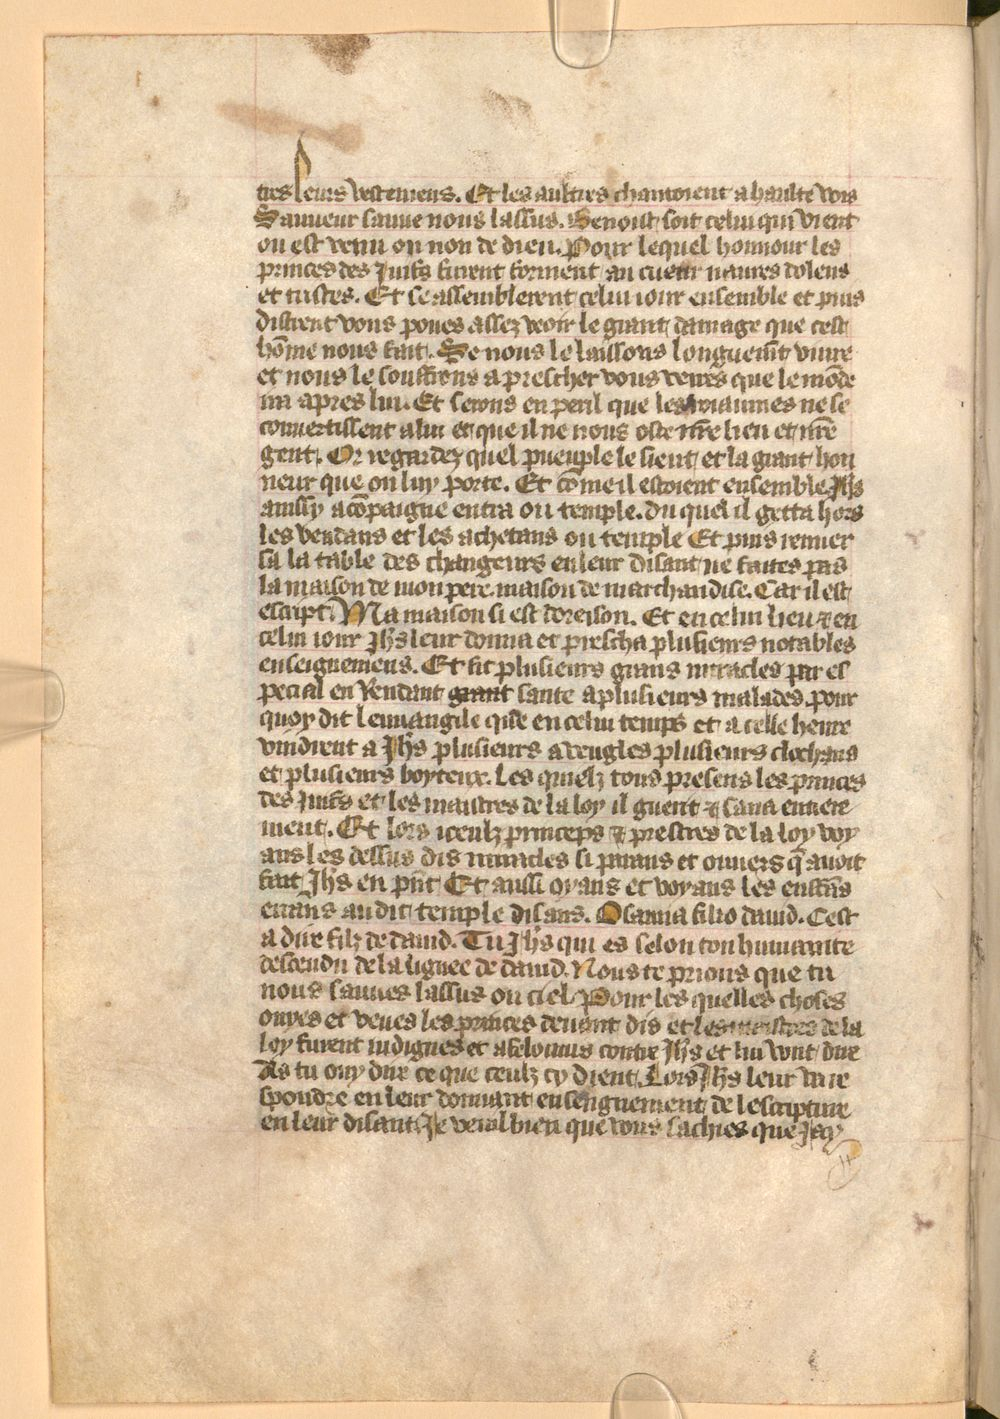 tres leurs vestemens. Et les aultres chantoient a haulte vois
Sauueur sauue nous lassus. Benoist soit celui qui vient
ou est venu ou non de dieu. Pour lequel honnour les
princes des Juifs furent forment au cueur naures dolens
et tristes. Et se assemblerent celui iour ensemble et puis
distrent vous poues assez veoir le grant damage que cest
hōme nous fait. Se nous le laissons longuemt̄ viure
et nous le souffrons a prescher vous verres que le mōde
ira apres lui. Et serons en peril que les roiaumes ne se
conuertissent a lui et que il ne nous oste nr̄e lieu et nr̄e
gent. Or regardez quel pueuple le sieut et la grant hon
neur que on luy porte. Et cōme il estoient ensemble Jh̄s
aussy acōpaigne entra ou temple. du quel il getta hors
les vendans et les achetans ou temple Et puis renuer
sa la table des changeurs en leur disant ne faites pas
la maison de mon pere. maison de marchandise. Car il est
escript. Ma maison si est doreison. Et en celui lieu & en
celui iour Jh̄s leur donna et prescha plusieurs notables
enseignemens. Et fit plusieurs grans miracles par es
pecial en Rendant grant sante a plusieurs malades pour
quoy dit leuuangile que en celui temps et a celle heure
vindrent a Jh̄s plusieurs aveugles plusieurs clochans
et plusieurs boyteux. Les quielz tous presens les princes
des Juifs et les maistres de la loy il guerit & sana entiere
ment. Et lors iceulz princeps & prestres de la loy voy
ans les dessus dis miracles si patans et ouuers q̄ auoit
fait Jh̄s en pn̄t Et aussi oyans et voyans les enffās
crians au dit temple disans. Osanna filio dauid. Cest
a dire filz de dauid. Tu Jh̄s qui es selon ton humanite
descendu de la lignee de dauid. Nous te prions que tu
nous sauues lassus ou ciel. Pour les quelles choses
ouyes et veues les princes deuant dis et les maistres de la
loy furent indignes et afelonnis contre Jh̄s et lui vont dire
As tu ouy dire ce que ceulz cy dient. Lors Jh̄s leur va re
spondre en leur donnant enseignement de lescripture
en leur disant Je veul bien que vous sachies que Jay